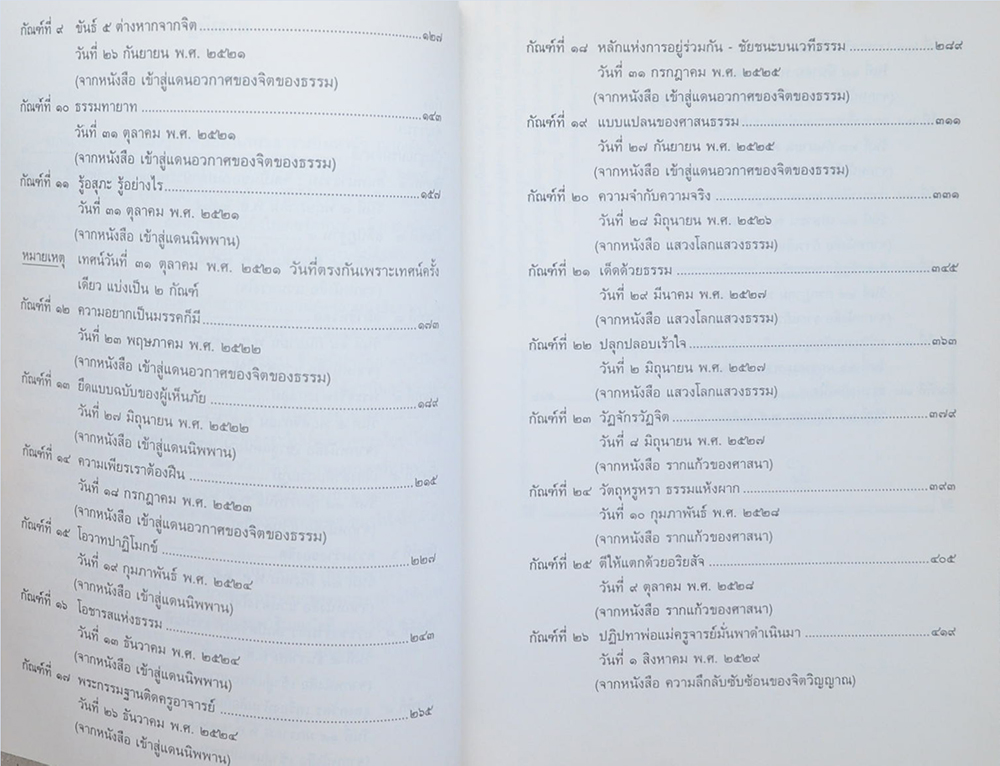 กัณฑ์ที่ ๙ ขันธ์ ๕ ต่างหากจากจิต.....๑๒๗
วันที่ ๒๖ กันยายน พ.ศ. ๒๕๒๑
(จากหนังสือ เข้าสู่แดนอวกาศของจิตของธรรม)
กัณฑ์ที่ ๑๐ ธรรมทายาท.....๑๔๓
วันที่ ๓๑ ตุลาคม พ.ศ. ๒๕๒๑
(จากหนังสือ เข้าสู่แดนอวกาศของจิตของธรรม)
กัณฑ์ที่ ๑๑ รู้อสุภะ รู้อย่างไร.....๑๕๗
วันที่ ๓๑ ตุลาคม พ.ศ. ๒๕๒๑
(จากหนังสือ เข้าสู่แดนนิพพาน)
หมายเหตุ เทศน์วันที่ ๓๑ ตุลาคม พ.ศ. ๒๕๒๑ วันที่ตรงกันเพราะเทศน์ครั้ง
เดียว แบ่งเป็น ๒ กัณฑ์
กัณฑ์ที่ ๑๒ ความอยากเป็นมรรคก็มี.....๑๗๓
วันที่ ๒๓ พฤษภาคม พ.ศ. ๒๕๒๒
(จากหนังสือ เข้าสู่แดนอวกาศของจิตของธรรม)
กัณฑ์ที่ ๑๓ ยึดแบบฉบับของผู้เห็นภัย.....๑๘๙
วันที่ ๒๗ มิถุนายน พ.ศ. ๒๕๒๒
(จากหนังสือ เข้าสู่แดนนิพพาน)
กัณฑ์ที่ ๑๔ ความเพียรเราต้องฝืน.....๒๑๕
วันที่ ๑๘ กรกฎาคม พ.ศ. ๒๕๒๓
(จากหนังสือ เข้าสู่แดนอวกาศของจิตของธรรม)
กัณฑ์ที่ ๑๕ โอวาทปาฏิโมกข์.....๒๒๗
วันที่ ๑๙ กุมภาพันธ์ พ.ศ. ๒๕๒๔
(จากหนังสือ เข้าสู่แดนนิพพาน)
กัณฑ์ที่ ๑๖ โอชารสแห่งธรรม.....๒๔๓
วันที่ ๑๓ ธันวาคม พ.ศ. ๒๕๒๔
(จากหนังสือ เข้าสู่แดนนิพพาน)
กัณฑ์ที่ ๑๗ พระกรรมฐานติดครูอาจารย์.....๒๖๕
วันที่ ๒๖ ธันวาคม พ.ศ. ๒๕๒๔
(จากหนังสือ เข้าสู่แดนนิพพาน)
กัณฑ์ที่ ๑๘ หลักแห่งการอยู่ร่วมกัน - ชัยชนะบนเวทีธรรม.....๒๘๙
วันที่ ๓๑ กรกฎาคม พ.ศ. ๒๕๒๕
(จากหนังสือ เข้าสู่แดนอวกาศของจิตของธรรม)
กัณฑ์ที่ ๑๙ แบบแปลนของศาสนธรรม.....๓๑๑
วันที่ ๒๗ กันยายน พ.ศ. ๒๕๒๕
(จากหนังสือ เข้าสู่แดนอวกาศของจิตของธรรม)
กัณฑ์ที่ ๒๐ ความจำกับความจริง.....๓๓๑
วันที่ ๒๘ มิถุนายน พ.ศ. ๒๕๒๖
(จากหนังสือ แสวงโลกแสวงธรรม)
กัณฑ์ที่ ๒๑ เด็ดด้วยธรรม.....๓๔๕
วันที่ ๒๙ มีนาคม พ.ศ. ๒๕๒๗
(จากหนังสือ แสวงโลกแสวงธรรม)
กัณฑ์ที่ ๒๒ ปลุกปลอบเร้าใจ.....๓๖๓
วันที่ ๒ มิถุนายน พ.ศ. ๒๕๒๗
(จากหนังสือ แสวงโลกแสวงธรรม)
กัณฑ์ที่ ๒๓ วัฏจักรวัฏจิต.....๓๗๙
วันที่ ๘ มิถุนายน พ.ศ. ๒๕๒๗
(จากหนังสือ รากแก้วของศาสนา)
กัณฑ์ที่ ๒๔ วัตถุหรูหรา ธรรมแห้งผาก.....๓๙๓
วันที่ ๑๐ กุมภาพันธ์ พ.ศ. ๒๕๒๘
(จากหนังสือ รากแก้วของศาสนา)
กัณฑ์ที่ ๒๕ ตีให้แตกด้วยอริยสัจ.....๔๐๕
วันที่ ๙ ตุลาคม พ.ศ. ๒๕๒๘
(จากหนังสือ รากแก้วของศาสนา)
กัณฑ์ที่ ๒๖ ปฏิปทาพ่อแม่ครูจารย์มั่นพาดำเนินมา.....๔๑๙
วันที่ ๑ สิงหาคม พ.ศ. ๒๕๒๙
(จากหนังสือ ความลึกลับซับซ้อนของจิตวิญญาณ)